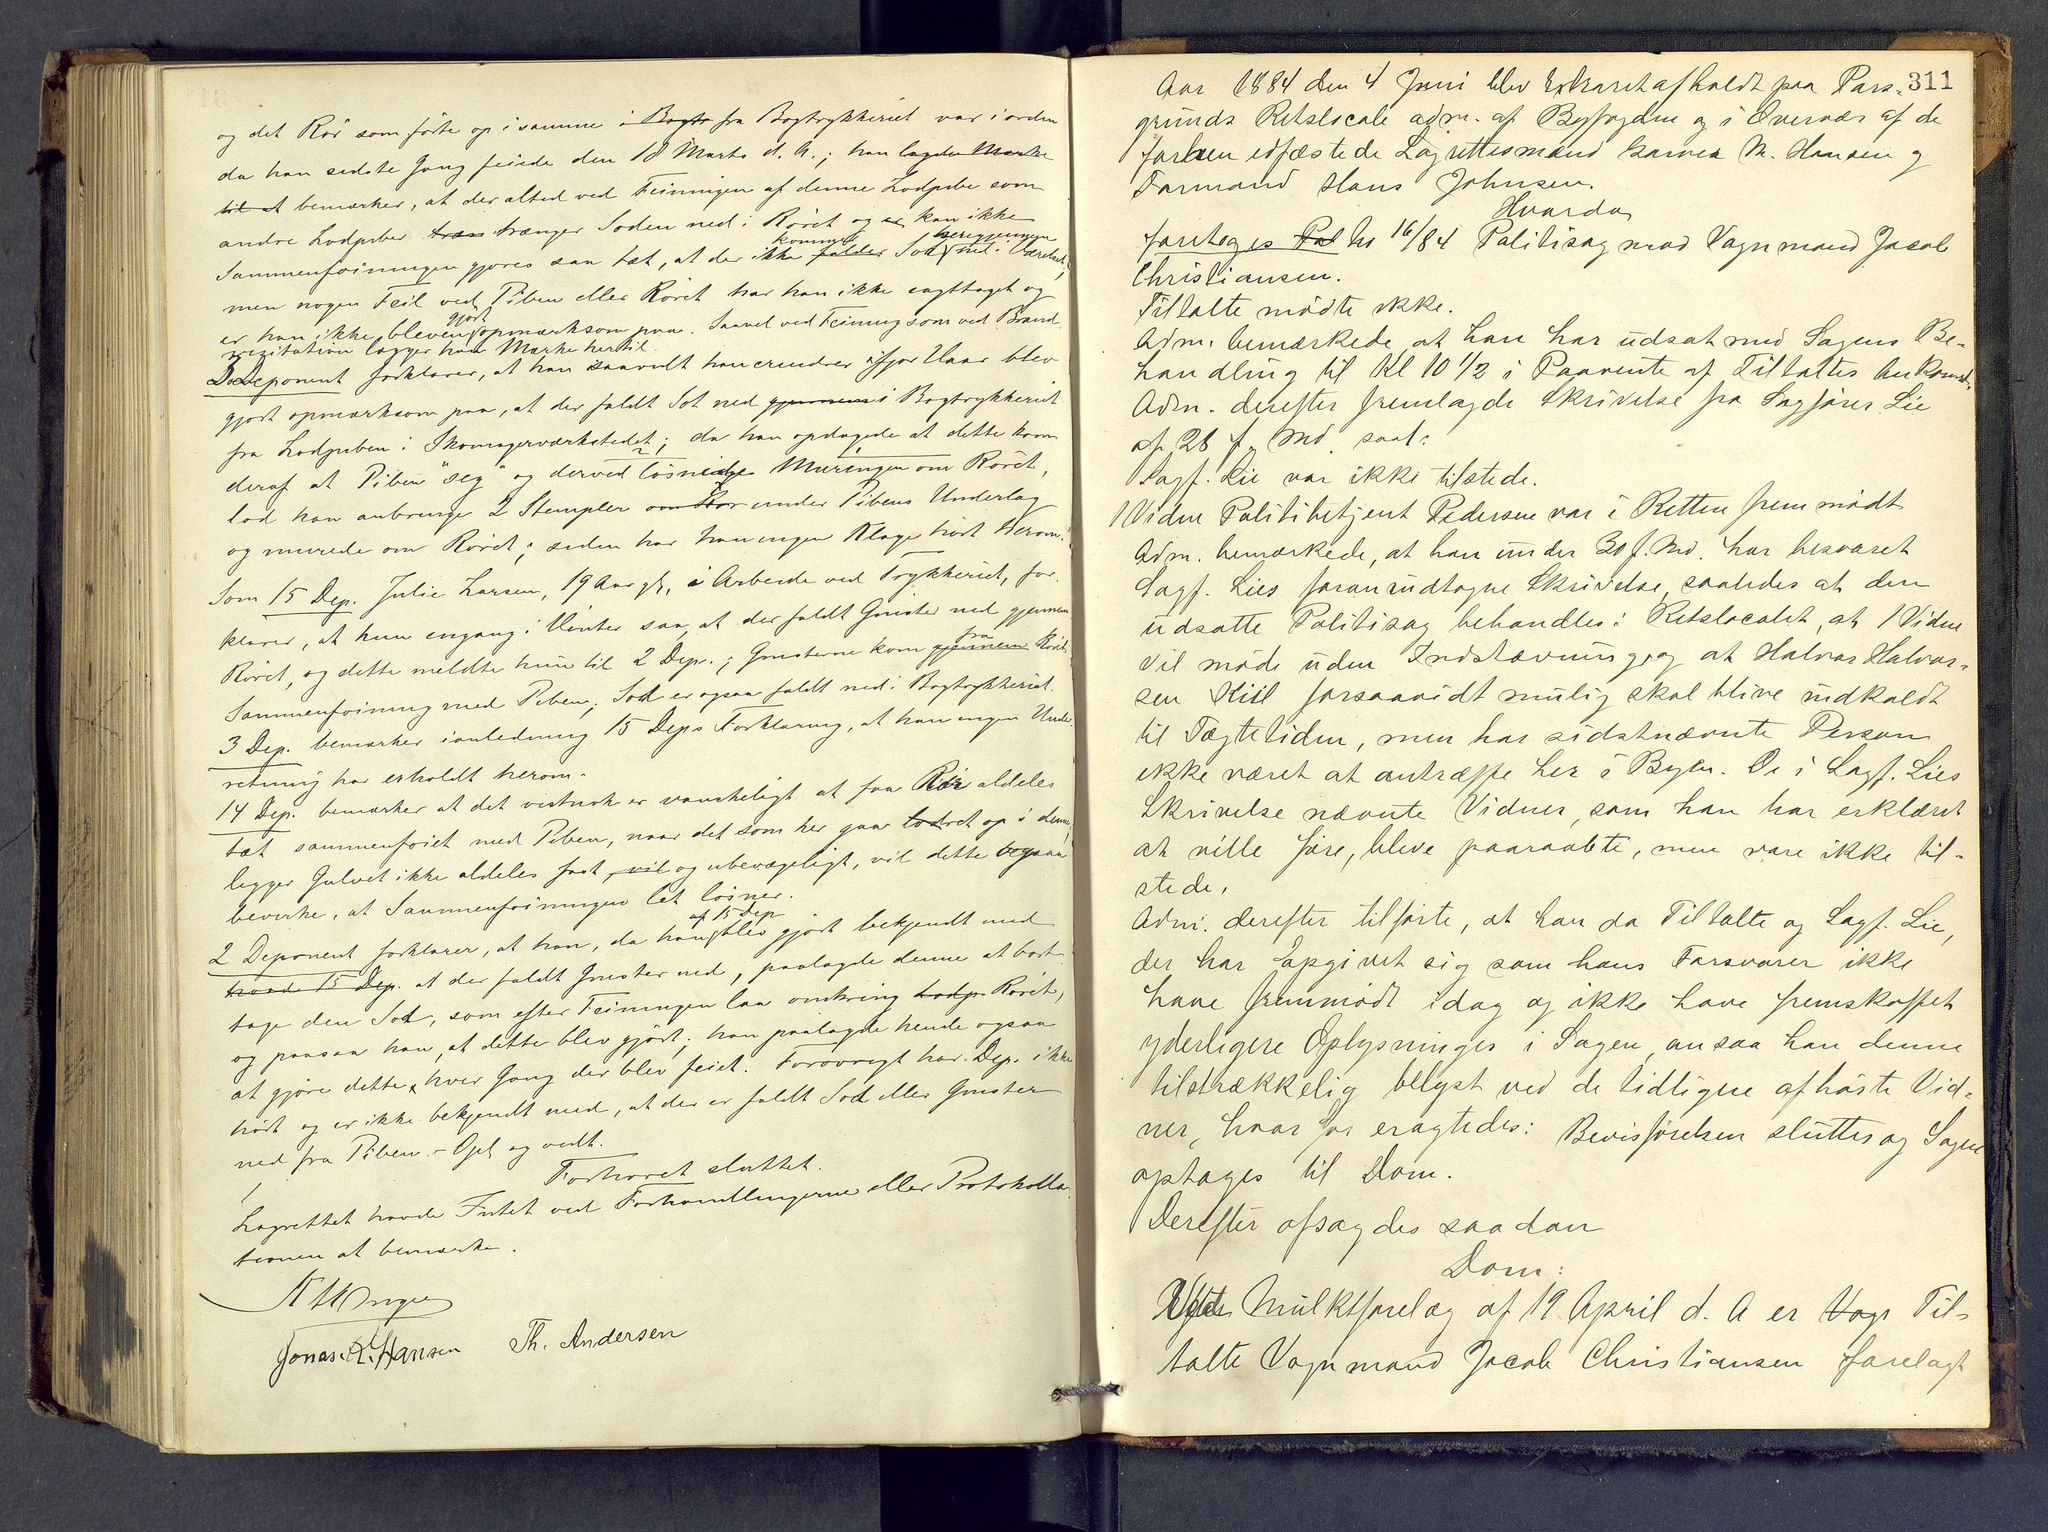 og det Rör som förte op i samme i Bogtr fra Bogtrykkeriet var i orden
da han sidste Gang feiede den 18 Marts d. A.; han lagde Mærke
til at bemærker, at der altid ved Feiningen af denne Lodpibe som
andre Lodpiber træn trænger Soden ned i Röret og er kan ikke
Sammenföiningen gjøres saa tæt, at der ikke falder kommer Sod ned i Værelset,
men nogen Feil ved Piben eller Röret har han ikke iagttaget og
er han ikke bleven gjort opmærksom paa. Saavel ved Feining som ved Brand
visitation lægger han Mærke hertil.
2 Deponent forklarer, at han saavidt han erindrer ifjor Vaar blev
gjort opmærksom paa, at der faldt Sot ned gjennem i Bogtrykkeriet
fra Lodpiben i Skomagerværkstedet; da han opdagede at dette kom
deraf at Piben "seg" og derved løsnede Muringen om Röret,
lod han anbringe 2 Stempler om Rör under Pibens Underlag
og murede om Röret; siden har han ingen Klage hört herom.
Som 15 Dep. Julie Larsen, 19 Aar gl., i Arbeide ved Trykkeriet, for-
klarer, at hun engang i Vinter saa, at der faldt Gnister ned gjennem
Röret, og dette meldte hun til 2 Dep.; Gnisterne kom gjennem fra Rörets
Sammenföining med Piben; Sod er ogsaa faldt ned i Bogtrykkeriet.
3 Dep. bemærker i anledning 15 Deps Forklaring, at han ingen Under-
retning har erholdt herom.
14 Dep. bemærker at det vistnok er vanskeligt at faa Rör aldeles
tæt sammenföiet med Piben, naar det som her gaar lodret op i denne;
ligger Gulvet ikke aldeles fast, vil og ubevægeligt, vil dette ogsaa
bevirke, at Sammenföiningen let löisner.
2 Deponent forklarer, at han, da han af 15 Dep blev gjört bekjendt med
hvad 15 Dep. at der faldt Gnister ned, paalagde denne at bort-
tage den Sod, som efter Feiningen laa omkring Lodp. Röret,
og paasaa han, at dette blev gjört; han paalagde hende ogsaa
at gjöre dette, hver Gang der blev feiet. Forövrigt har Dep. ikke
hört og er ikke bekjendt med, at der er faldt Sod eller Gnister
ned fra Piben. - Opl. og vedt.
Forhöret sluttet.
Lagrettet havde Intet ved Forhandlingerne eller Protokolla-
tionen at bemærke.
Jonas R. Hansen Th. Andersen
311
Aar 1884 den 4 Juni blev Extraret afholdt paa Pors-
grunds Retslocale adm. af Byfogden og i Overvær af de
forhen edfæstede Lagrettesmænd Garver M. Hansen og
Formand Hans Johnsen.
Hvorda
foretoges Pol No 16/84 Politisag mod Vognmand Jacob
Christiansen.
Tiltalte mödte ikke.
Adm. bemærkede at han har udsat med Sagens Be-
handling til Kl 10 1/2 i Paavente af Tiltaltes Ankomst.
Adm. derefter fremlagde Skrivelse fra Sagfører Lie
af 28 f. Md. saal:
Sagf. Lie var ikke tilstede.
1 Vidne Politibetjent Pedersen var i Retten fremmødt
Adm. bemærkede, at han under 30 f. Md. har besvaret
Sagf. Lies foranundtagne Skrivelse, saaledes at den
udsatte Politisag behandles i Retslocalet, at 1 Vidne
vil møde uden Indstævning, og at Halvor Halvor-
sen Kiil forsaavidt mulig skal blive indkaldt
til Tægtetiden, men har sidstnævnte Person
ikke været at antræffe her i Byen. De i Sagf. Lies
Skrivelse nævnte Vidner, som han har erklæret
at ville føre, bleve paaraabte, men vare ikke til-
stede.
Adm. derefter tilførte, at han da Tiltalte og Sagf. Lie,
der har opgivet sig som hans Forsvarer ikke
have fremmødt idag og ikke have fremskaffet
yderligere Oplysninger i Sagen, ansaa han denne
tilstrækkelig belyst ved de tidligere afhørte Vid-
ner, hvorfor eragtedes: Bevisførelsen sluttes og Sagen
optages til Dom.
Derefter afsagdes saadan
Dom:
Ved Mulktforelæg af 19. April d. A er Vogn Til-
talte Vognmand Jacob Christiansen forelagt